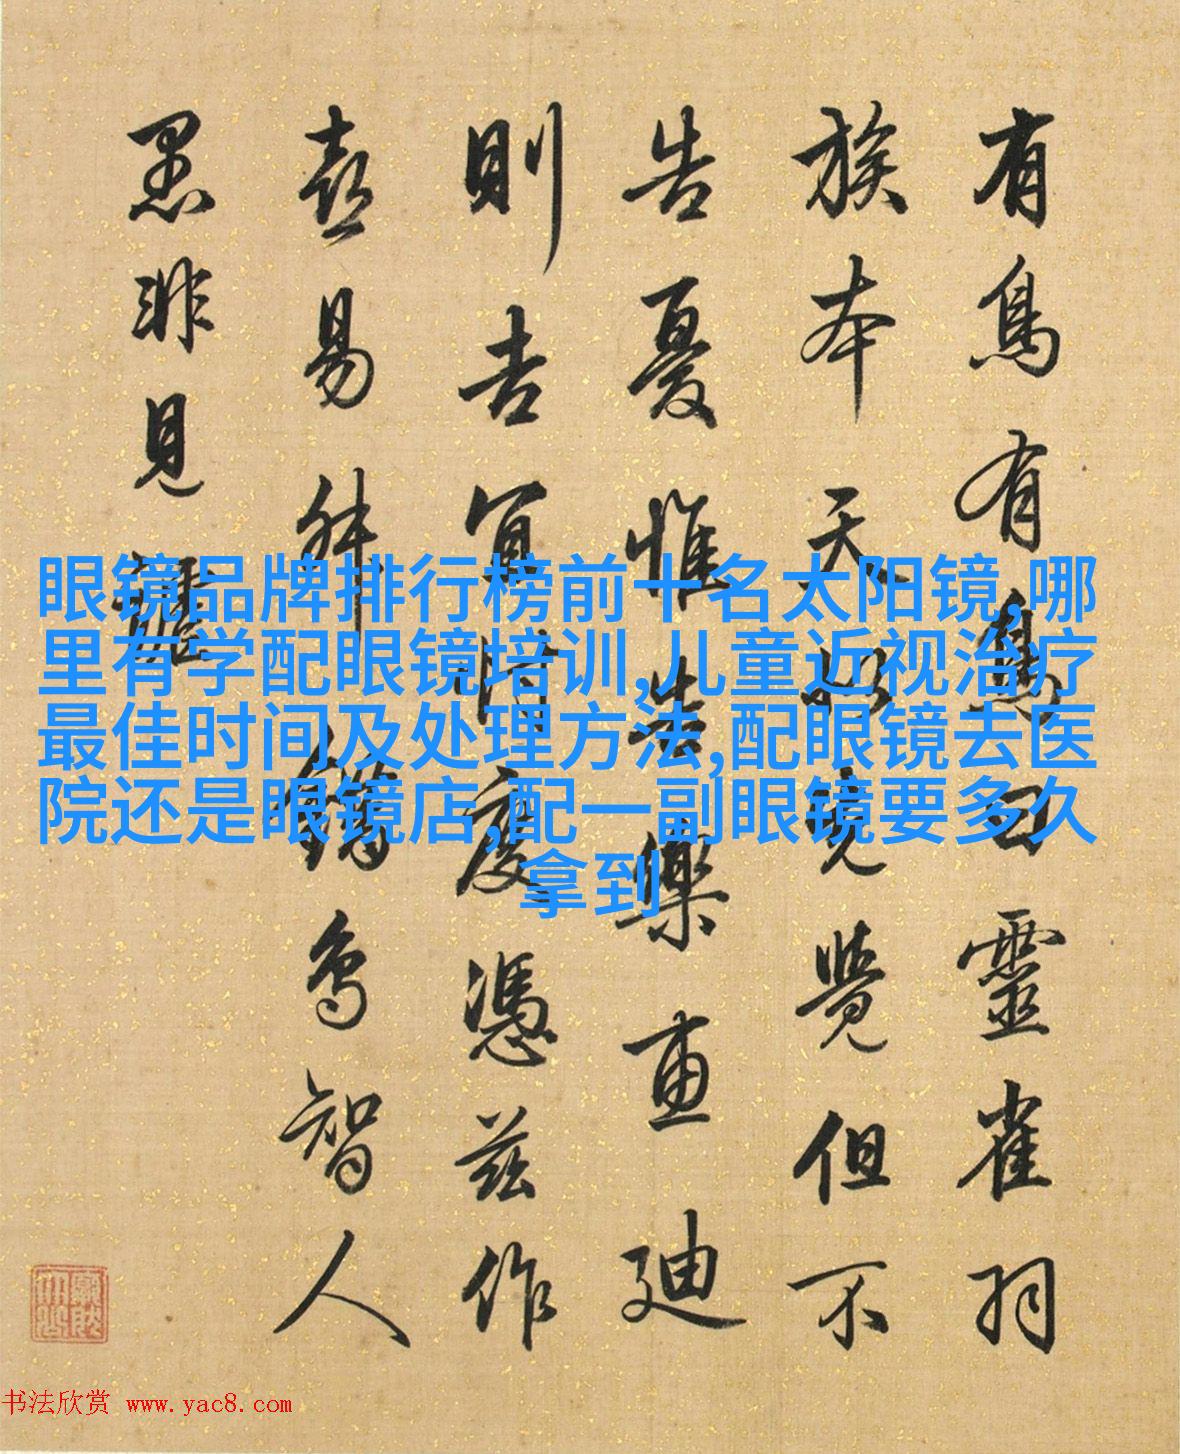 有鳥有鳥曰靈雀羽
族本天以覺覺但不
告憂惟告樂車迪
則吉宜皆度憑茲作
喜易舛錯鳥智人
愚非見
眼镜品牌排行榜前十名太阳镜,哪
里有学配眼镜培训,儿童近视治疗
最佳时间及处理方法,配眼镜去医
院还是眼镜店,配一副眼镜要多久
拿到
书法欣赏 www.yac8.com